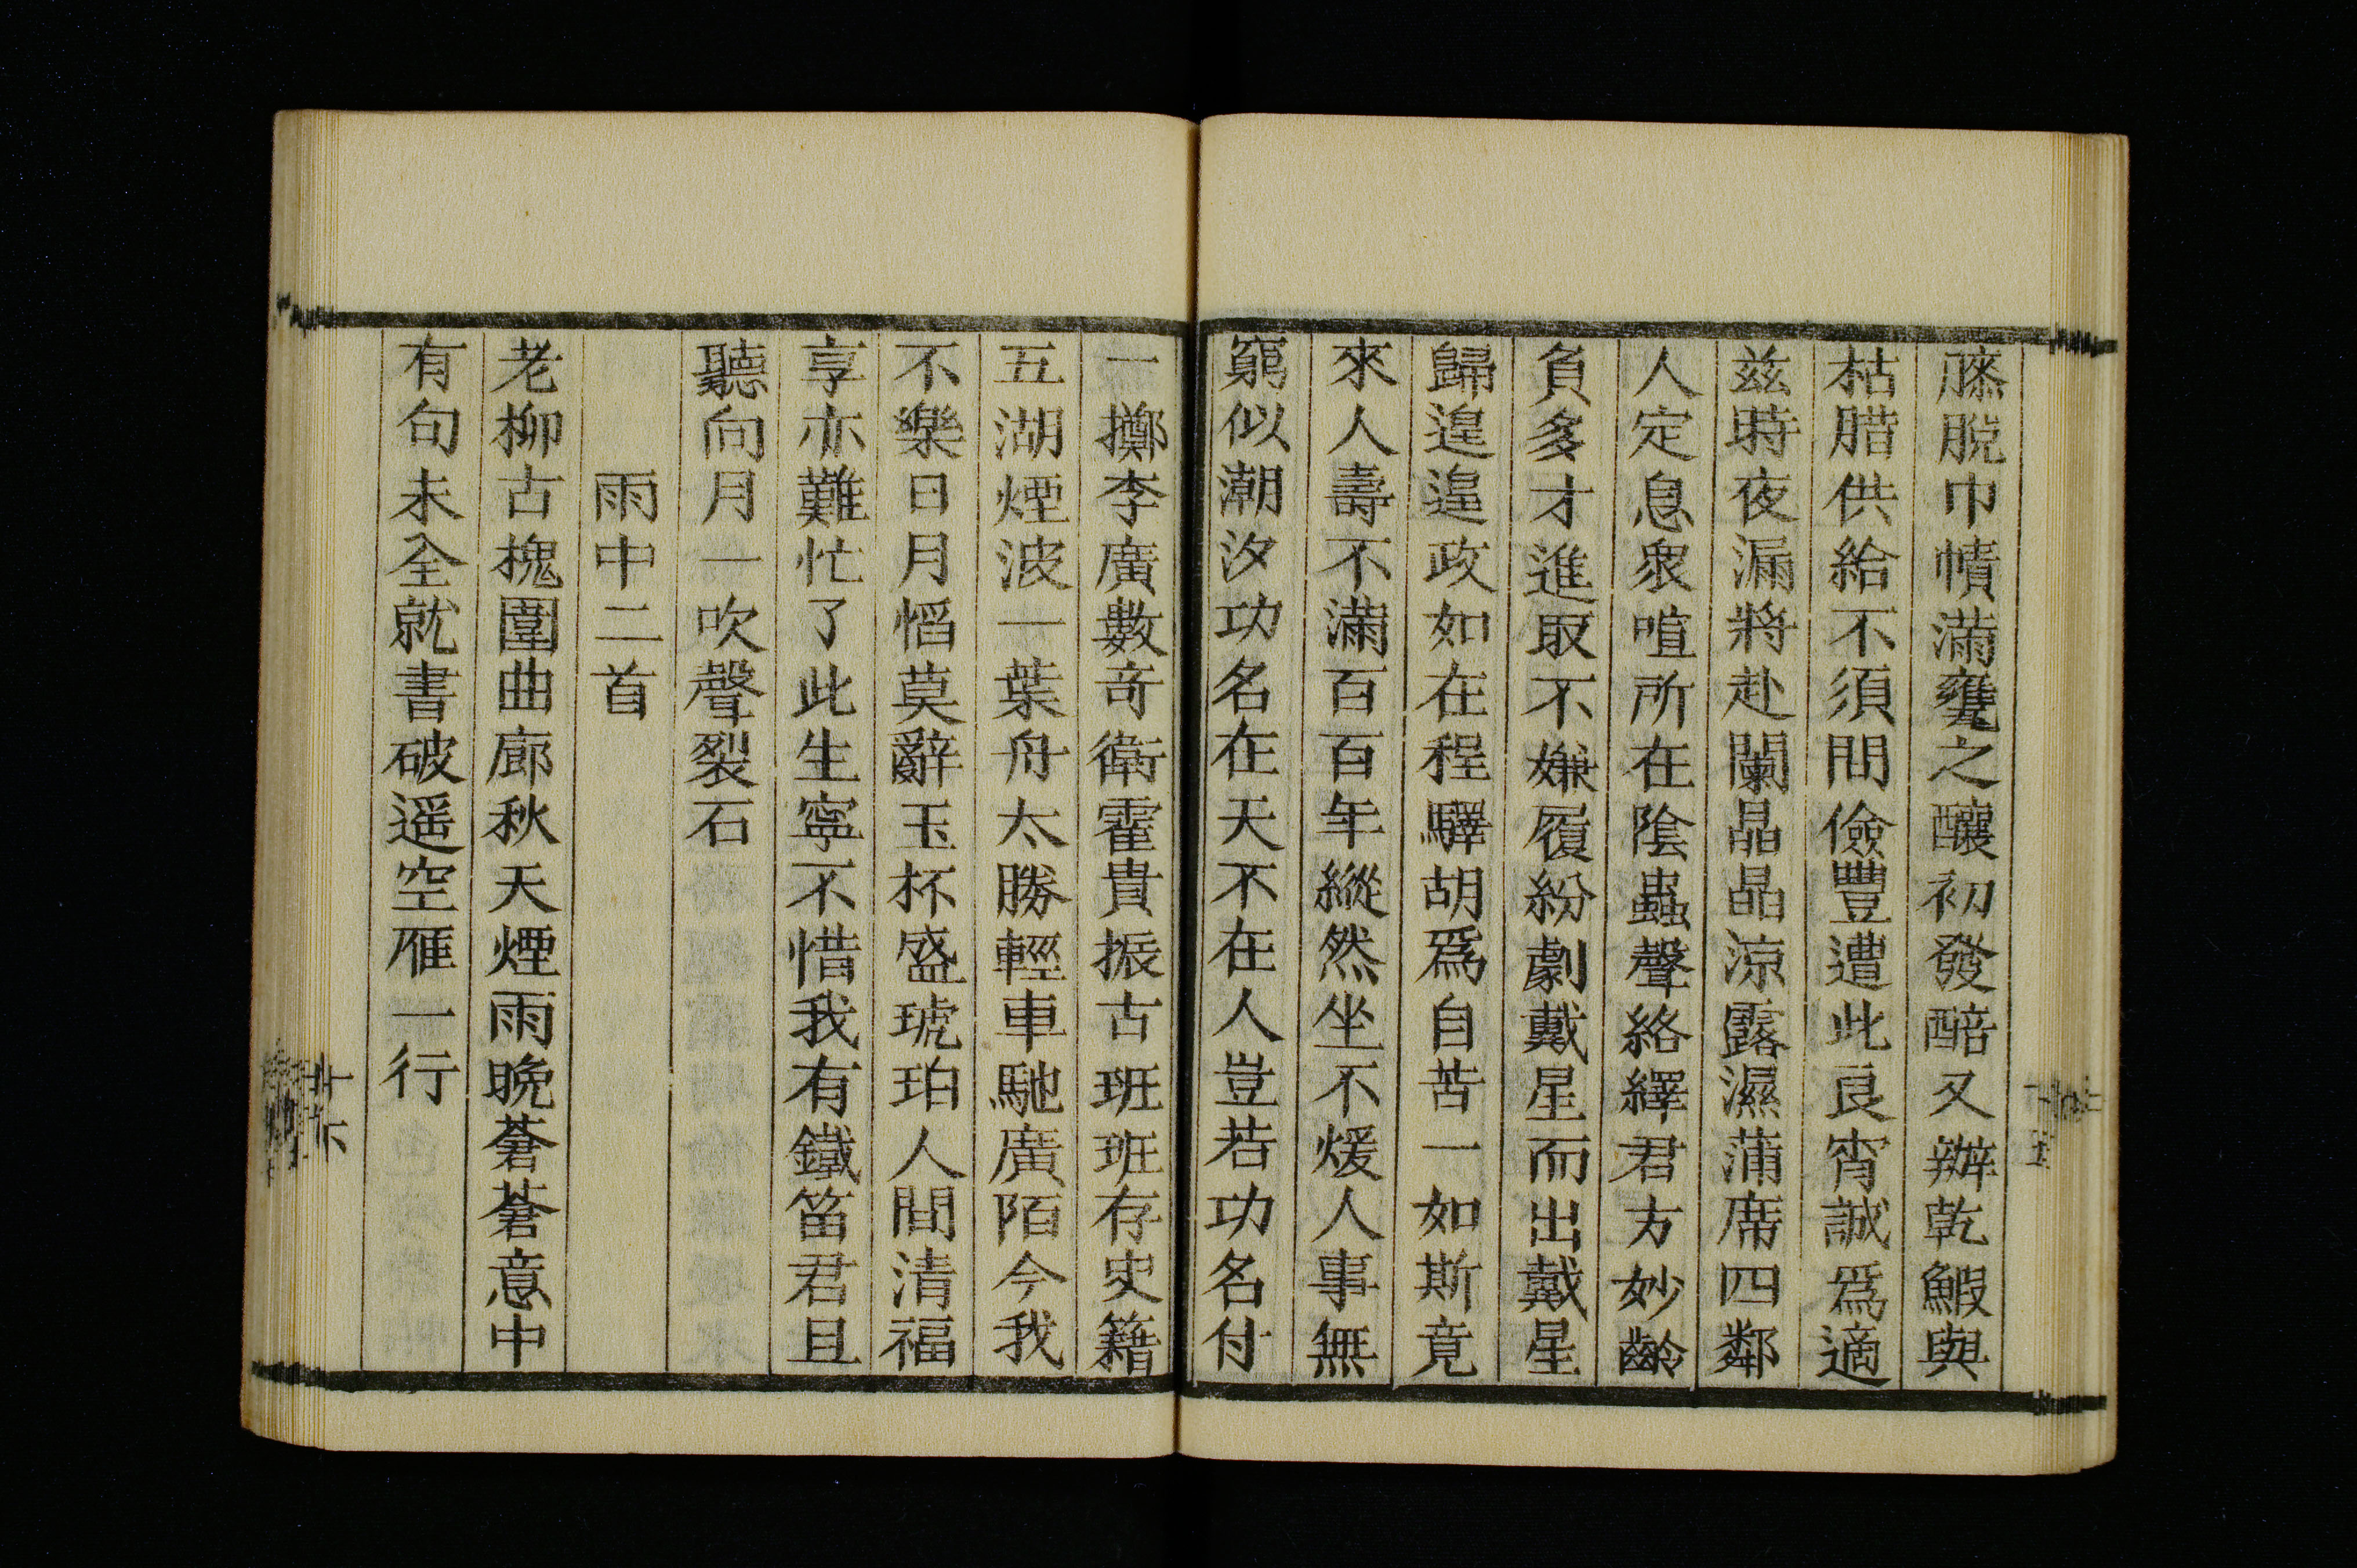 滕脫巾幘滿甕之釀初發醅又辦乾鰕與
枯腊供給不須問儉豐遭此良宵誠爲適
兹時夜漏將赴闌晶晶涼露濕蒲席四鄰
人定息衆喧所在陰蟲聲絡繹君方妙齡
負多才進取不嫌履紛劇戴星而出戴星
歸遑遑政如在程驛胡爲自苦一如斯竟
來人壽不滿百百年縱然坐不煖人事無
窮似潮汐功名在天不在人豈若功名付
一擲李廣數奇衛霍貴振古班班存史籍
五湖煙波一葉舟太勝輕車馳廣陌今我
不樂日月慆莫辭玉杯盛琥珀人間清福
享亦難忙了此生寧不惜我有鐵笛君且
聽向月一吹聲裂石
雨中二首
老柳古槐圍曲廊秋天煙雨晚蒼蒼意中
有句未全就書破遥空雁一行
廿六